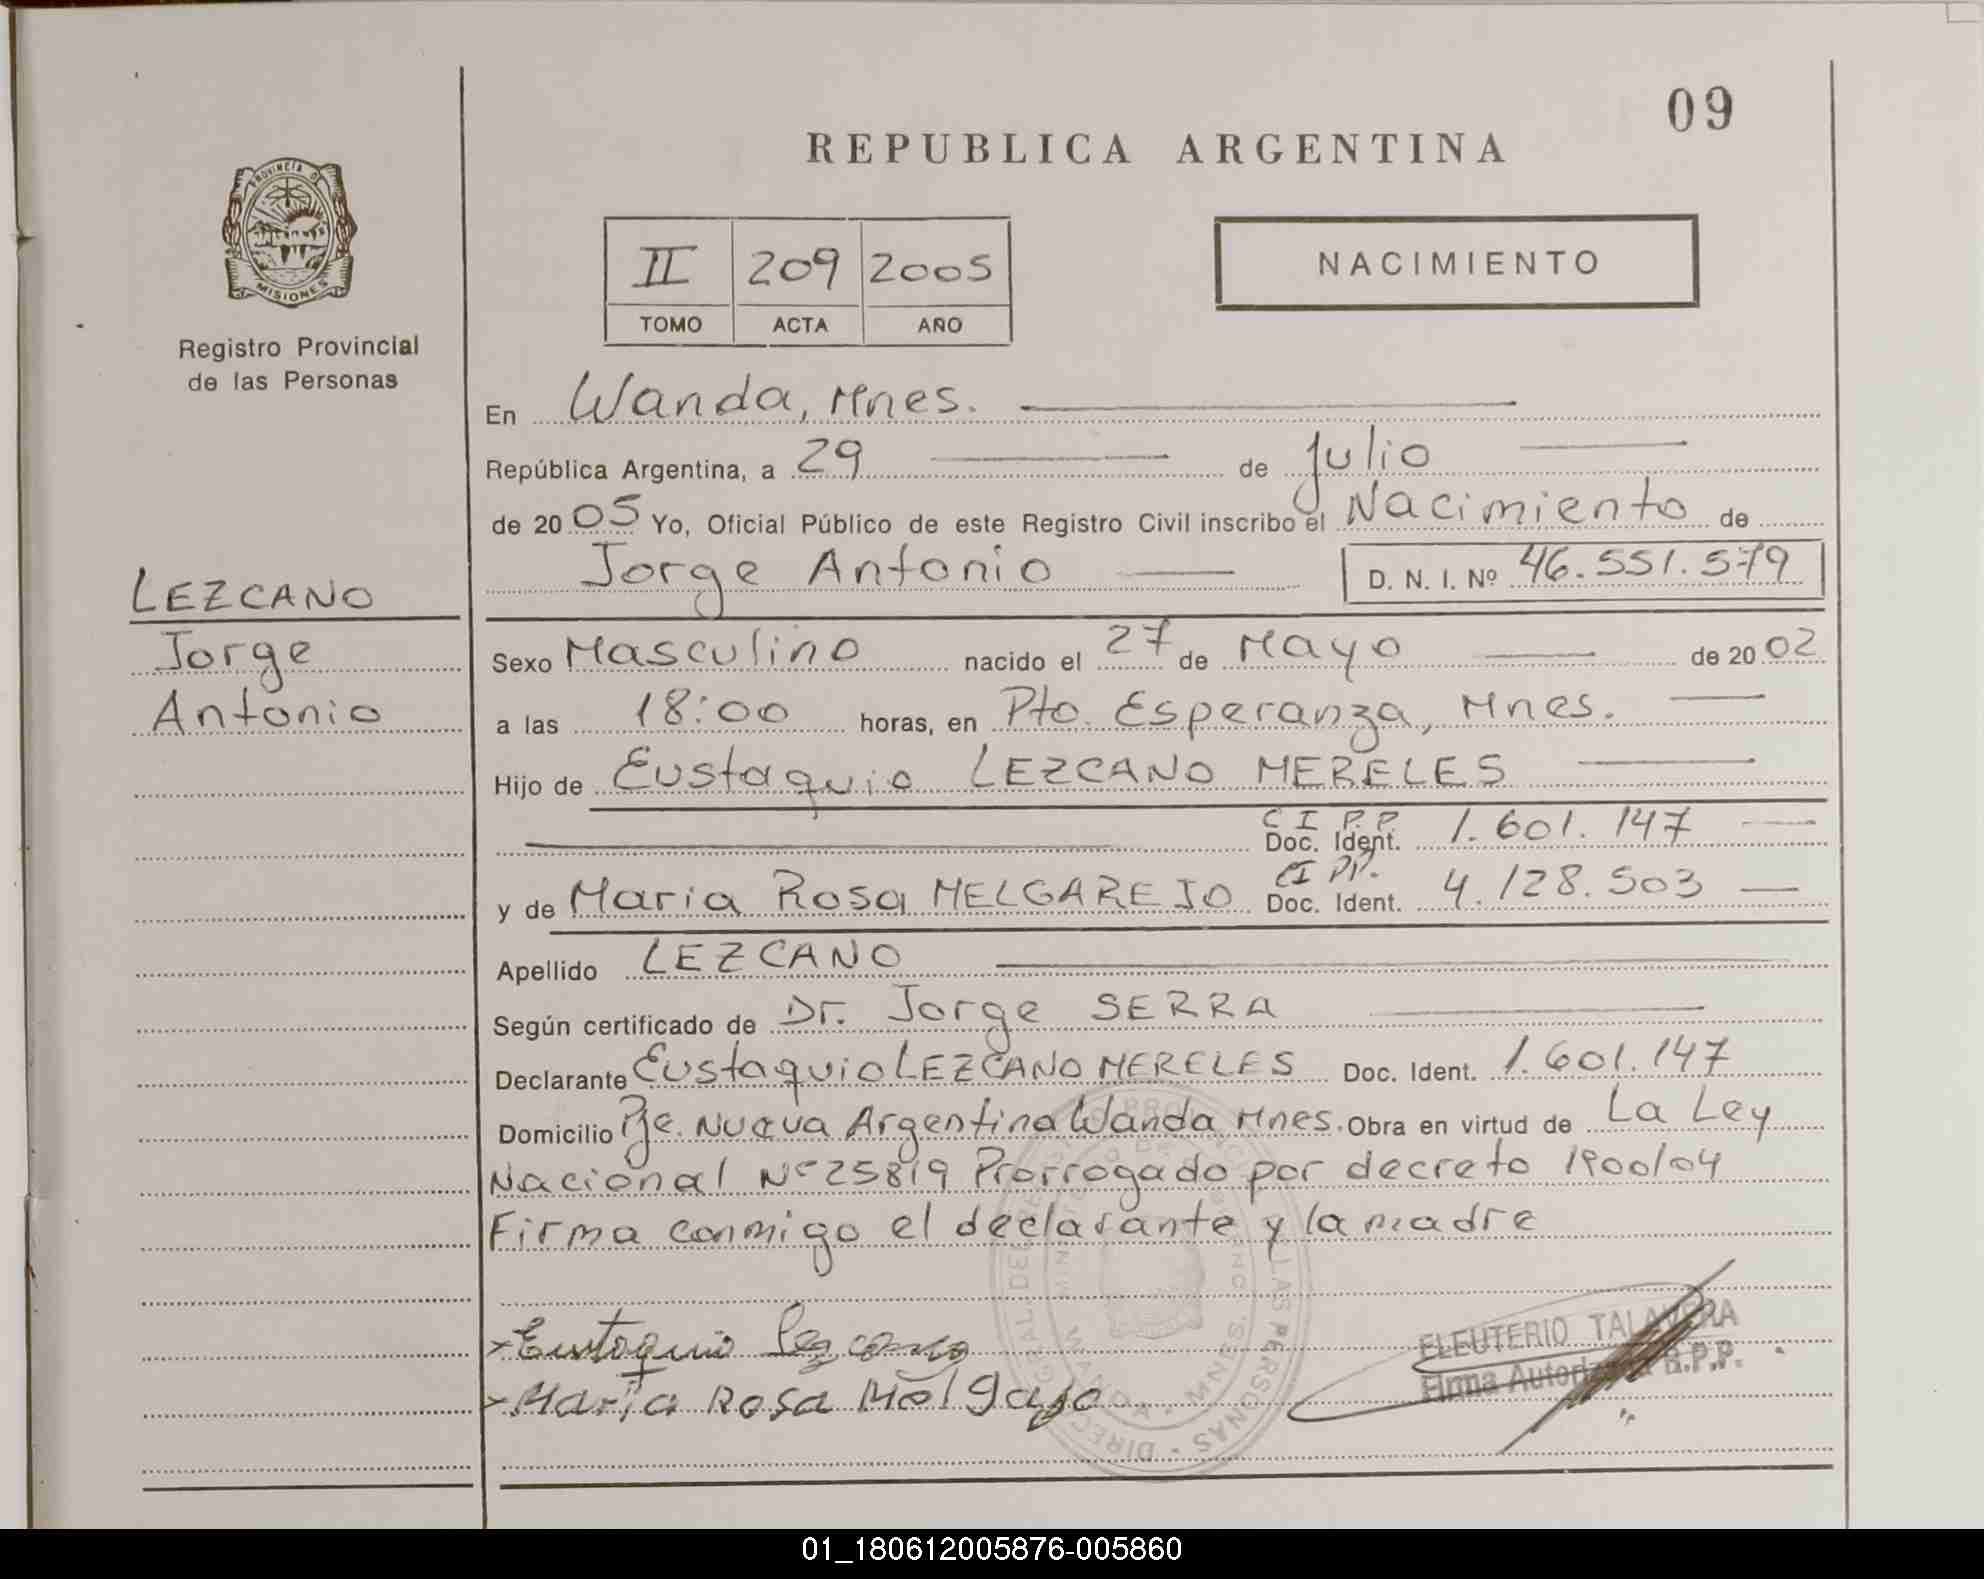 09
REPUBLICA ARGENTINA
PROVINCIA D
MISIONES
Registro Provincial
de las Personas
II 209 2005
TOMO ACTA AÑO
NACIMIENTO
En Wanda, Mnes.
República Argentina, a 29 de Julio
de 2005 Yo, Oficial Público de este Registro Civil inscribo el Nacimiento de
Jorge Antonio D. N. I. Nº 46.551.579
LEZCANO
Jorge
Antonio
Sexo Masculino nacido el 27 de Mayo de 2002
a las 18:00 horas, en Pto. Esperanza, Mnes.
Hijo de Eustaquio LEZCANO MERELES
C I P.P
Doc. Ident. 1.601.147
CI PP.
y de Maria Rosa MELGAREJO Doc. Ident. 4.128.503
Apellido LEZCANO
Según certificado de Dr. Jorge SERRA
Declarante Eustaquio LEZCANO MERELES Doc. Ident. 1.601.147
Domicilio Pje. Nueva Argentina Wanda Mnes. Obra en virtud de La Ley
Nacional Nº 25819 Prorrogado por decreto 1900/04
Firma conmigo el declarante y la madre
Eustaquio Lezcano
Maria Rosa Melgajo
ELEUTERIO TALAVERA
Firma Autorizada R.P.P.
WANDA - MNES.
01_180612005876-005860